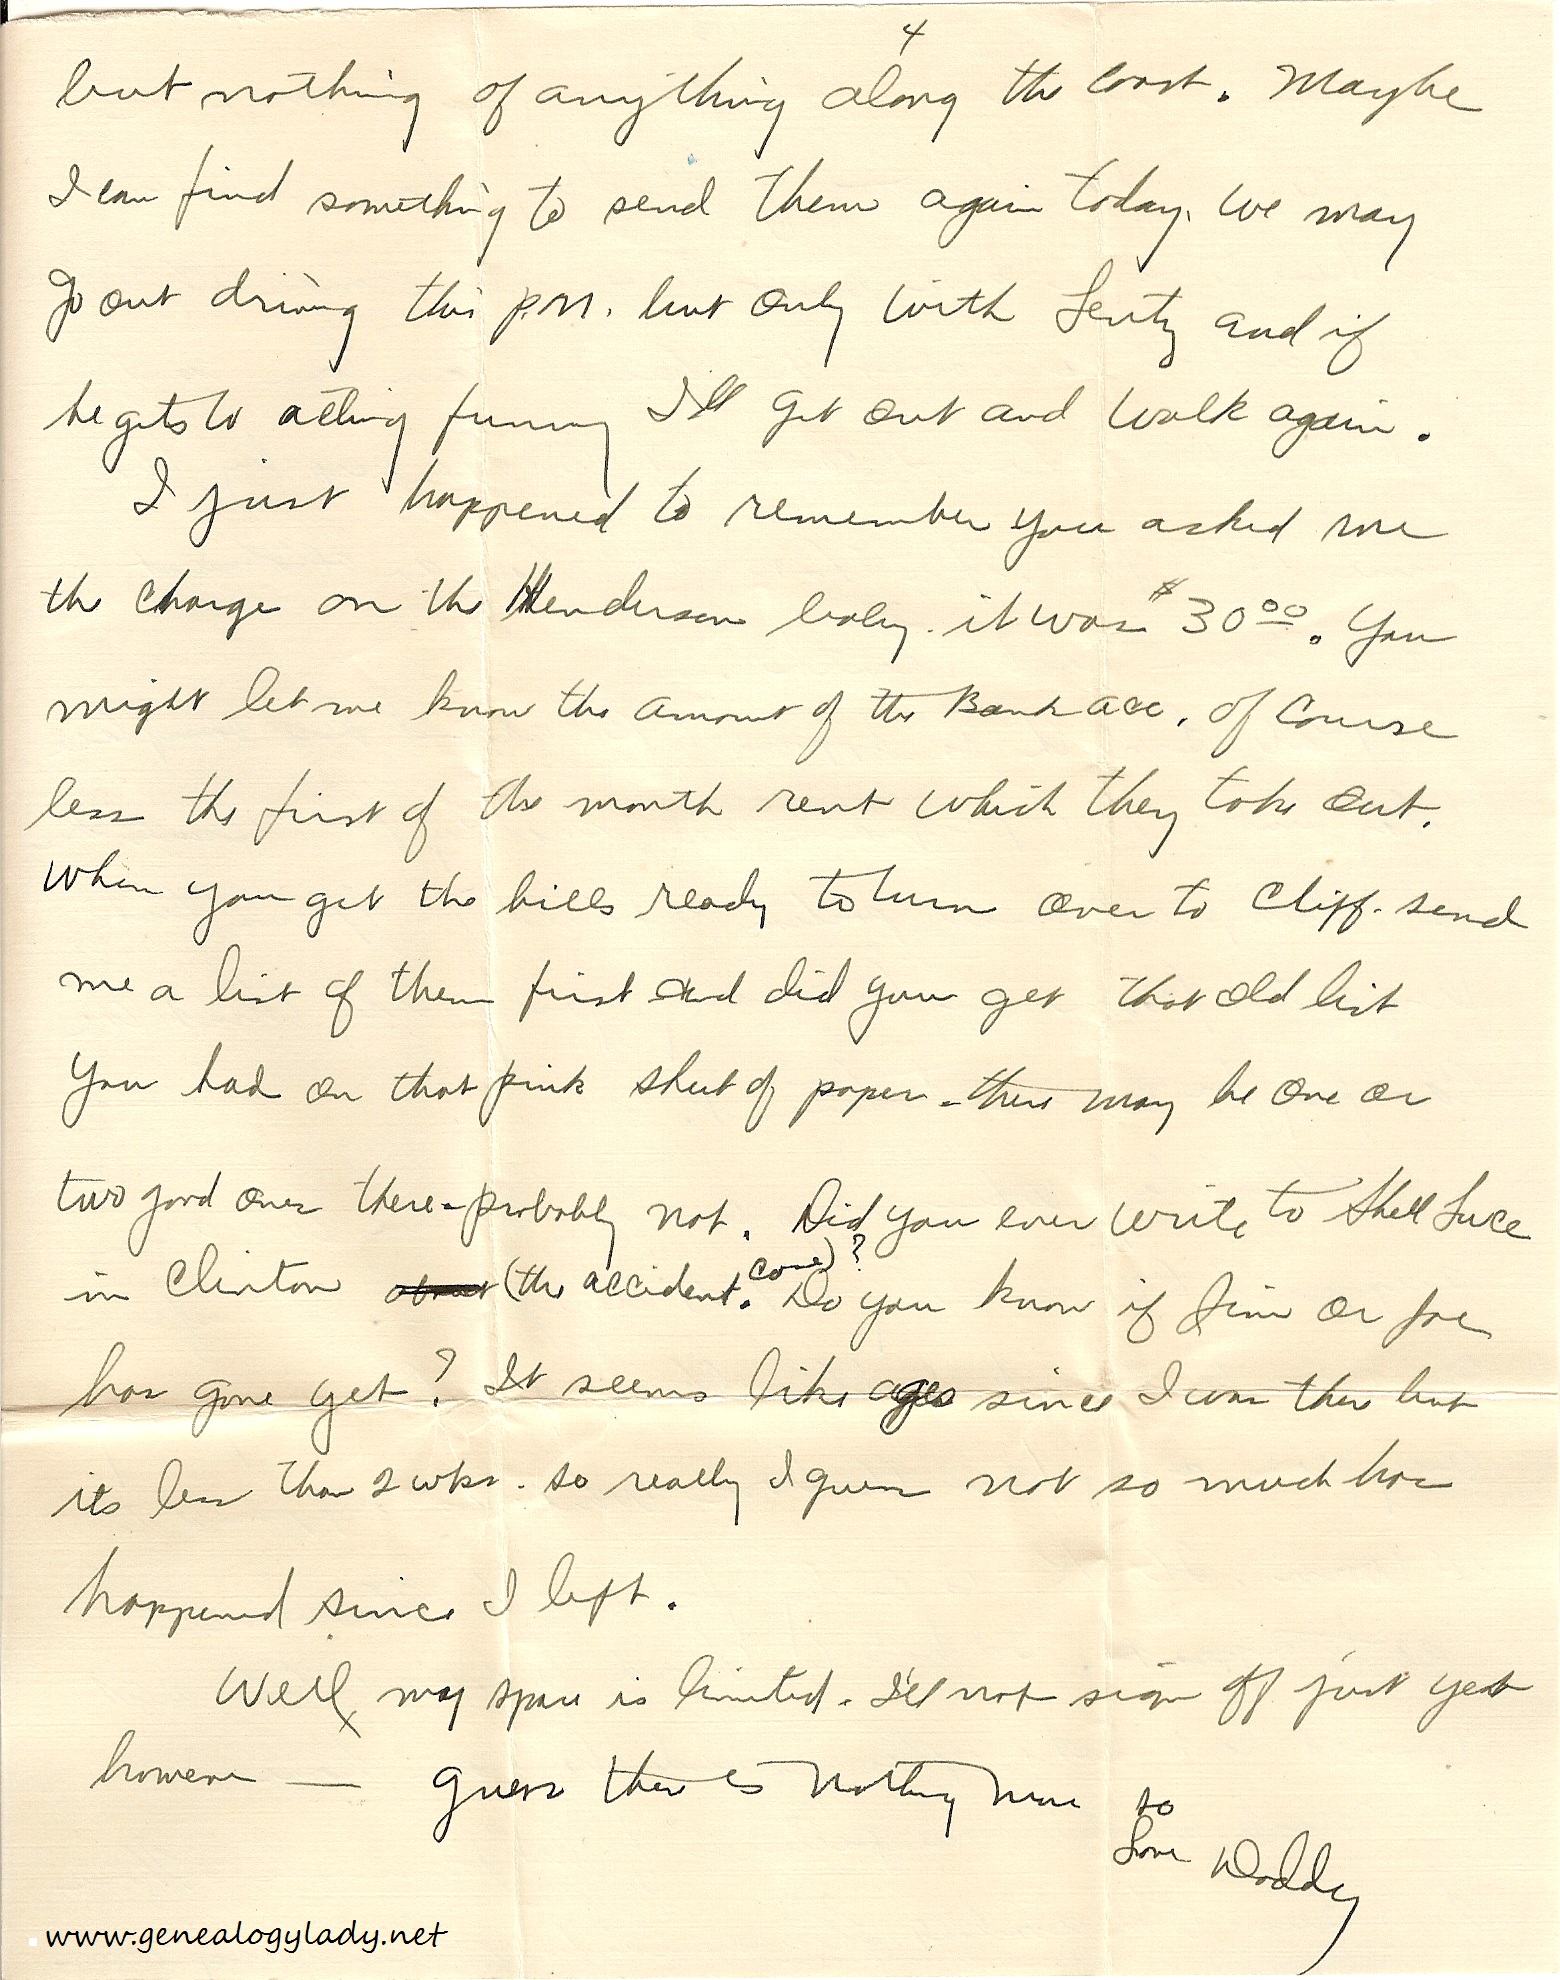 4
but nothing of anything along the coast. Maybe
I can find something to send them again today. We may
go out driving this p.m. but only with Lentz and if
he gets to acting funny I'll get out and walk again.
I just happened to remember you asked me
the charge on the Henderson baby. it was $30.00. You
might let me know the amount of the Bank acc. of course
less the first of the month rent which they take out.
When you get the bills ready to turn over to Cliff. send
me a list of them first and did you get that old list
you had on that pink sheet of paper - there may be one or
two good ones there - probably not. Did you ever write to Shell Luce
in Clinton about (the accident. case)? Do you know if Jim or Joe
has gone yet? It seems like ages since I was there but
its less than 2 wks. so really I guess not so much has
happened since I left.
Well, my space is limited. I'll not sign off just yet
however — guess there is nothing more so
Love Daddy
www.genealogylady.net